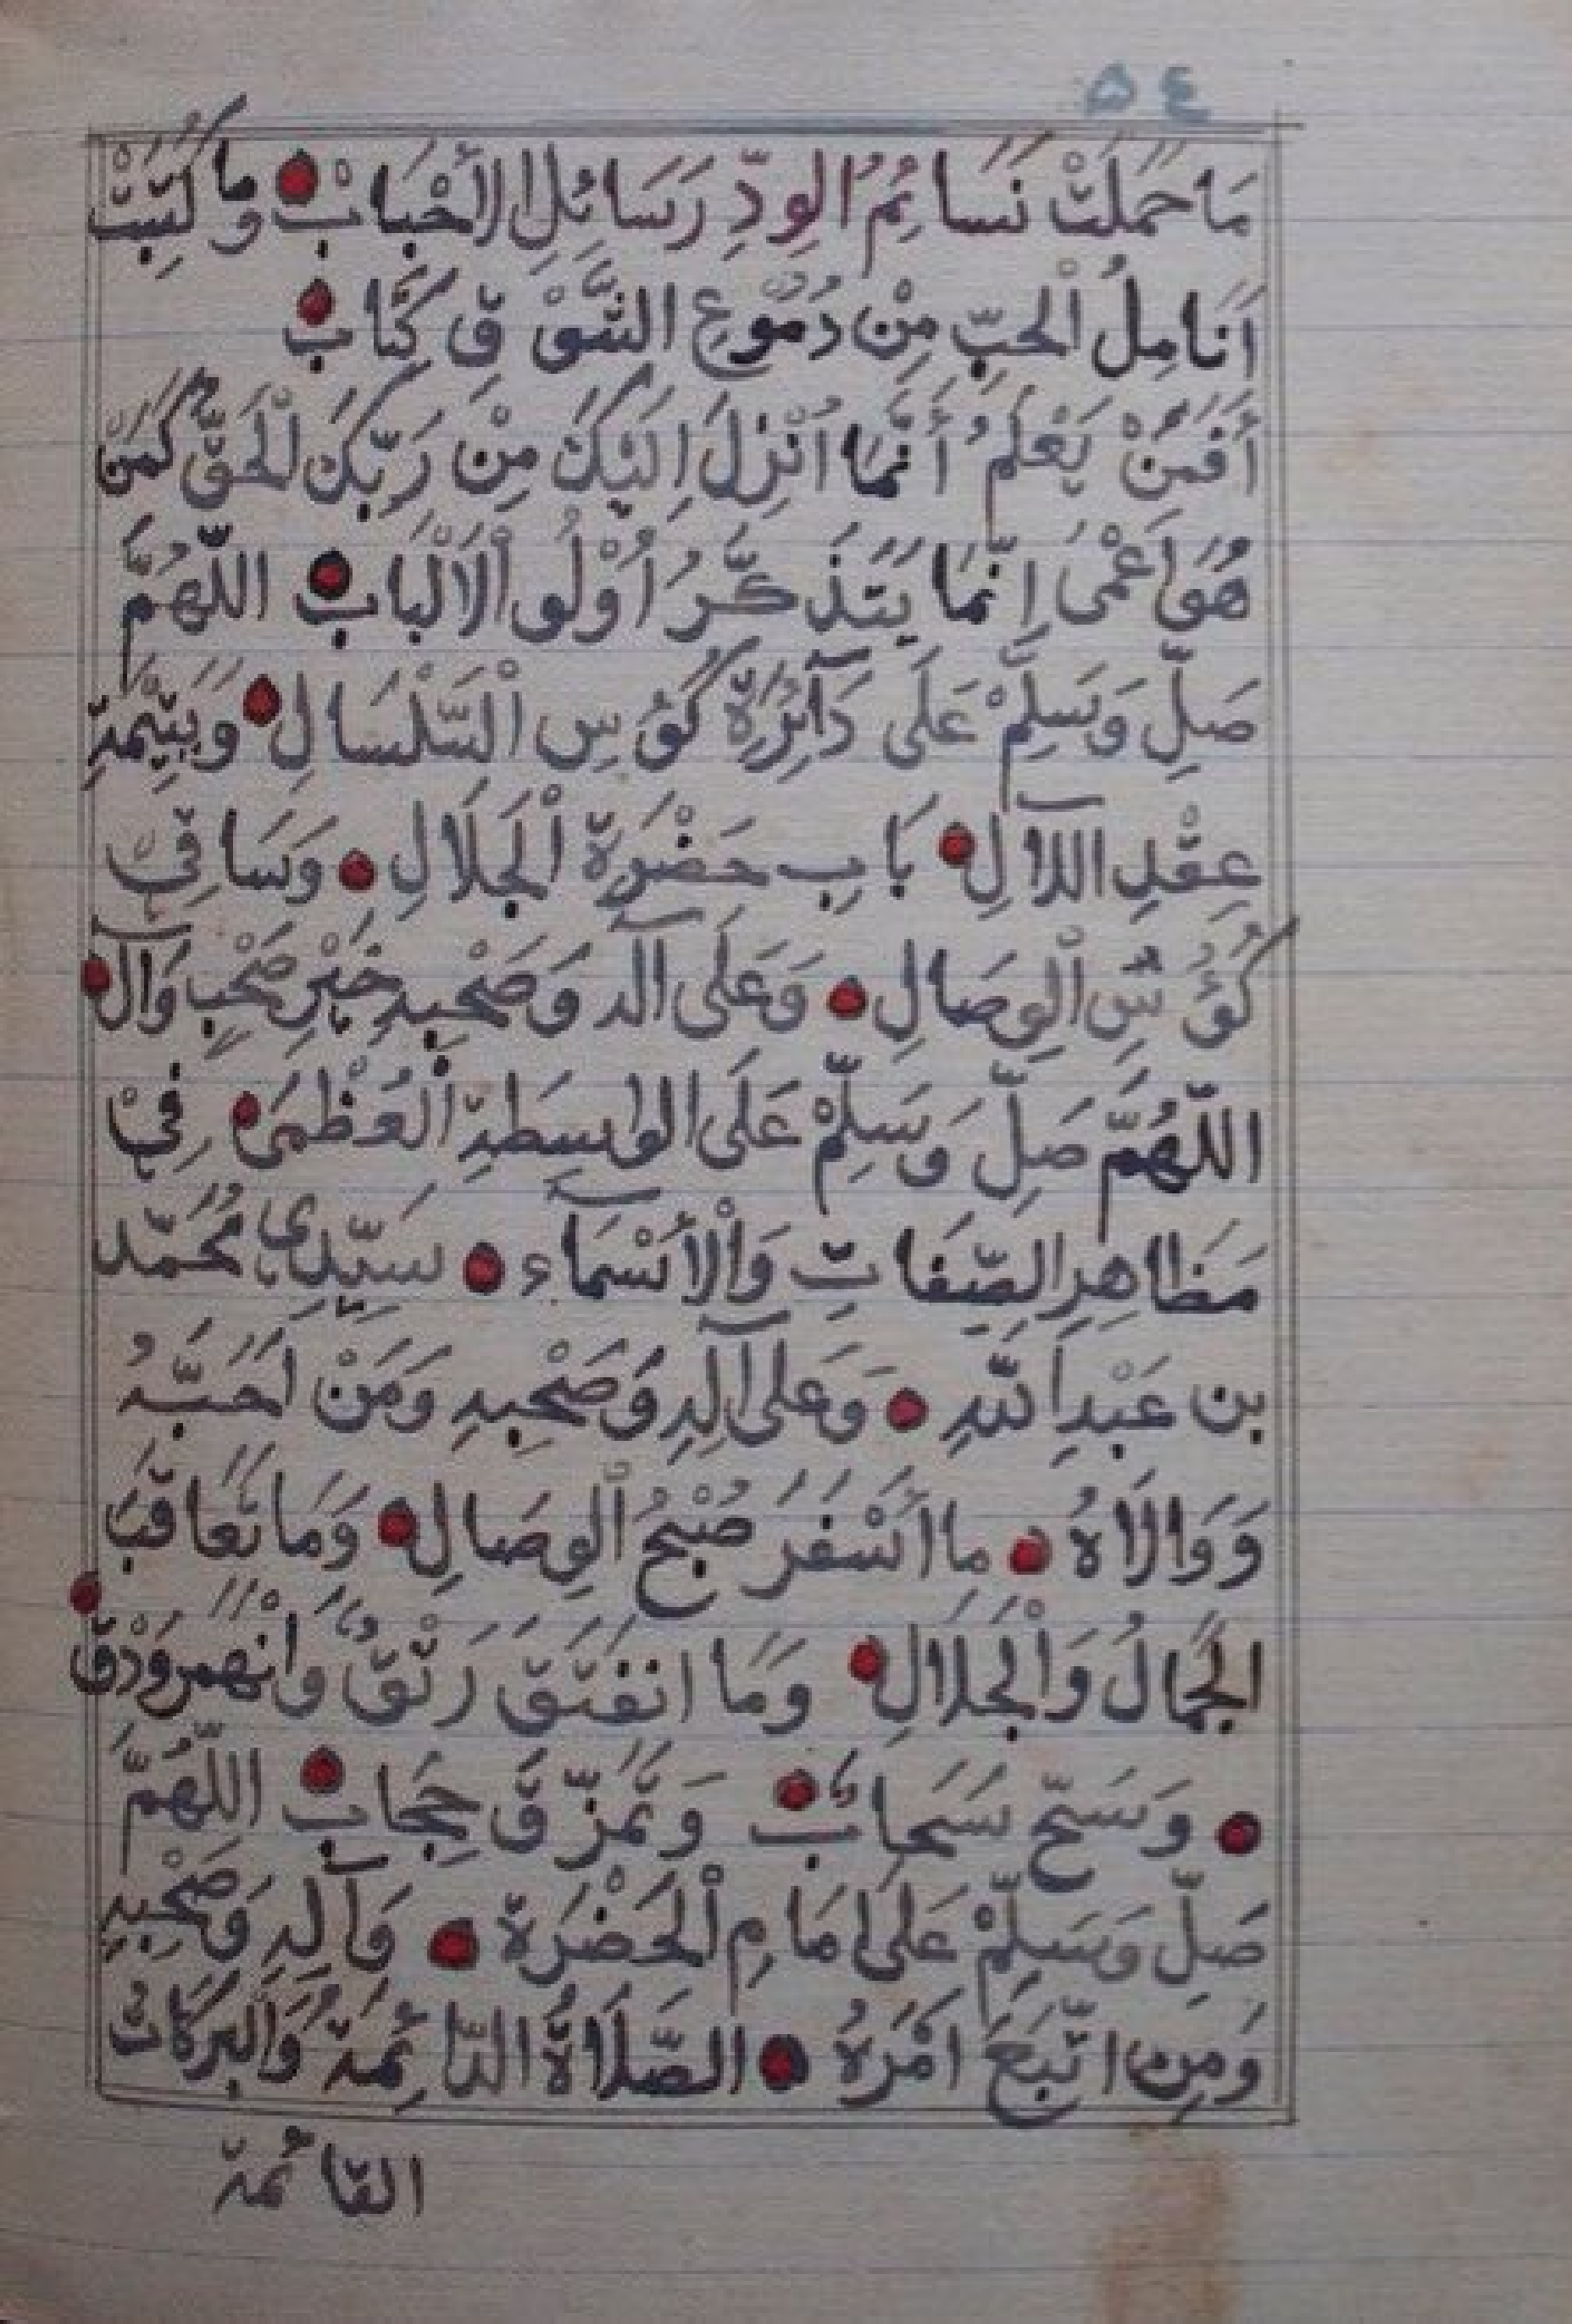 ٥٤
مَا حَمَلَتْ نَسَائِمُ الوِدِّ رَسَائِلِ الأَحْبَابْ وما كَتَبَتْ
أَنَامِلُ الْحُبِّ مِنْ دُمُوْعِ الشَّوْقِ كِتَابْ
أَفَمَنْ يَعْلَمُ أَنَّمَا اُنْزِلَ اِلَيْكَ مِنْ رَبِّكَ الْحَقُّ كَمَنْ
هُوَ اَعْمَى اِنَّمَا يَتَذَكَّرُ اُوْلُو الْاَلْبَابِ اللّهُمَّ
صَلِّ وَسَلِّمْ عَلَى دَآئِرَةِ كُؤُسِ الْسَّلْسَالِ وَيَتِيْمَةِ
عِقْدِ اللآلِ بَابِ حَضْرَةِ الْجَلَالِ وَسَاقِيْ
كُؤُسِ الْوِصَالِ وَعَلَى آلهِ وَصَحْبِهِ خَيْرِ صَحْبٍ وَآلْ
اللّهُمَّ صَلِّ وَسَلِّمْ عَلَى الوَاسِطَةِ الْعُظْمَى فِيْ
مَظَاهِرِ الصِّفَاتِ وَالْأَسْمَآء سَيِّدِي مُحَمَّد
بن عَبْدِ اللّهِ وَعَلَى آلِهِ وَصَحْبِهِ وَمَنْ اَحَبَّهُ
وَوَالَاهُ مَا أَسْفَرَ صُبْحُ الْوِصَالِ وَمَا تَعَاقَبَ
الجَمَالُ وَالْجَلَالِ وَمَا انفَتَقَ رَتْقٌ وَانْهَمَرَ وَدْقٌ
وَسَحَّ سَحَابٌ وَتَمَزَّقَ حِجَابْ اللّهُمَّ
صَلِّ وَسَلِّمْ عَلَى اِمَامِ الْحَضْرَة وَآلِهِ وَصَحْبِهِ
وَمِن اتَّبَعَ اَمْرَهُ الصَّلَاةُ الدَّائِمَةُ وَالْبَرَكَاتُ
القائمة